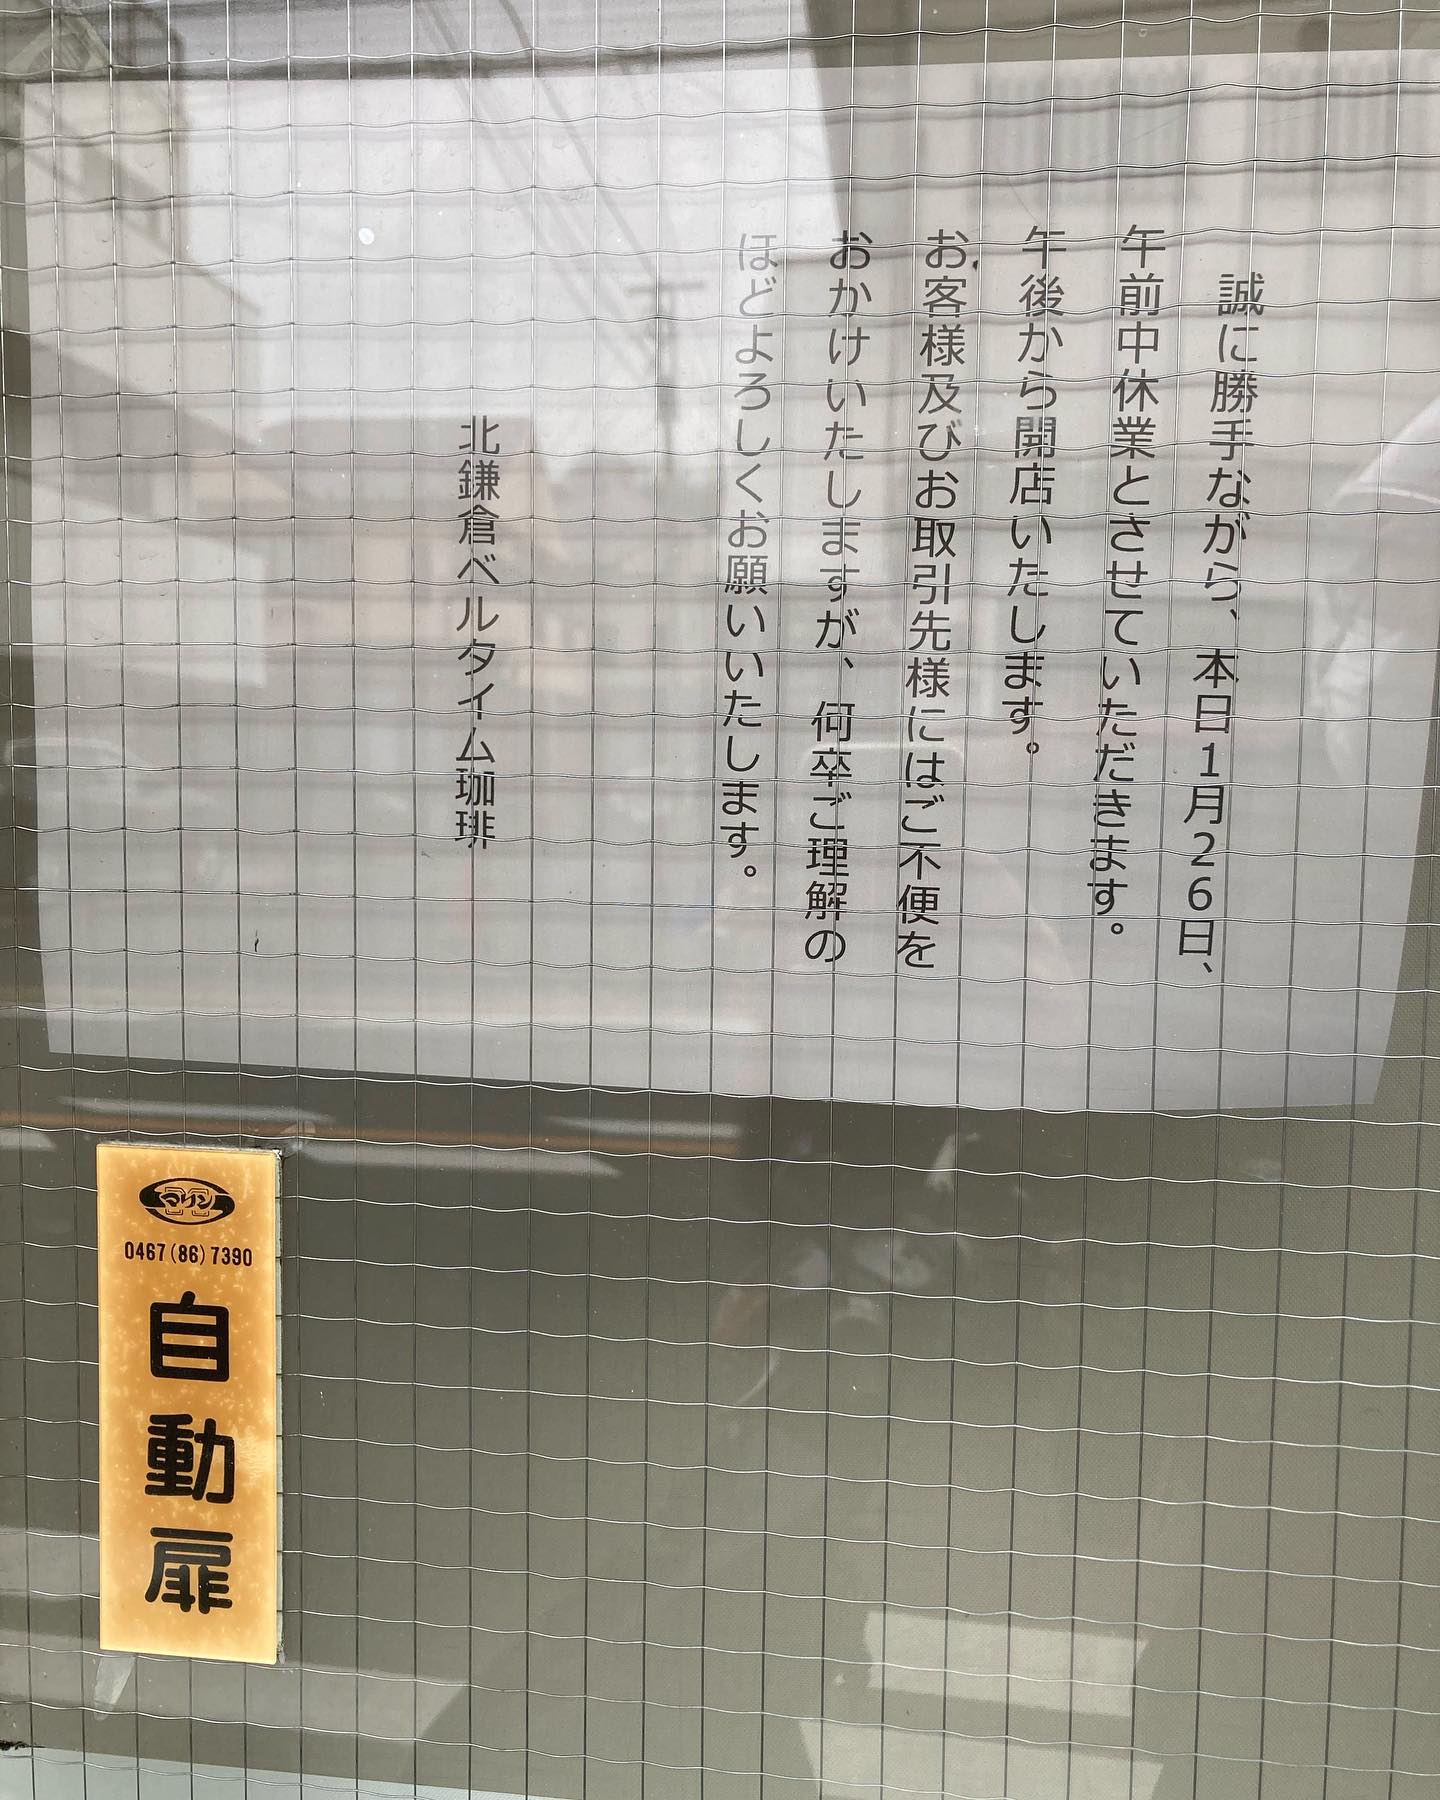 誠に勝手ながら、本日1月26日、
午前中休業とさせていただきます。
午後から開店いたします。
お客様及びお取引先様にはご不便を
おかけいたしますが、何卒ご理解の
ほどよろしくお願いいたします。
北鎌倉ベルタイム珈琲
マリン
0467(86)7390
自動扉